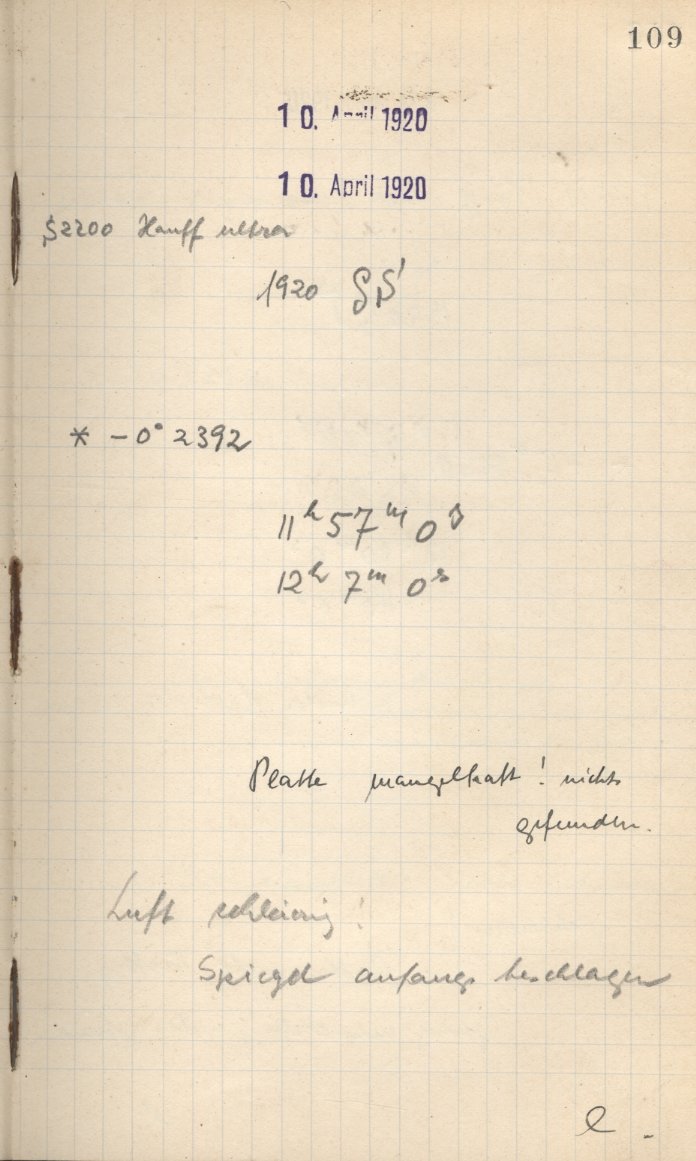 109
10. April 1920
10. April 1920
S2200 Hauff ultra
1920
* -0° 2392
11ʰ 57ᵐ 0ˢ
12ʰ 7ᵐ 0ˢ
Platte mangelhaft! nichts
gefunden.
Luft schleierig!
Spiegel anfangs beschlagen